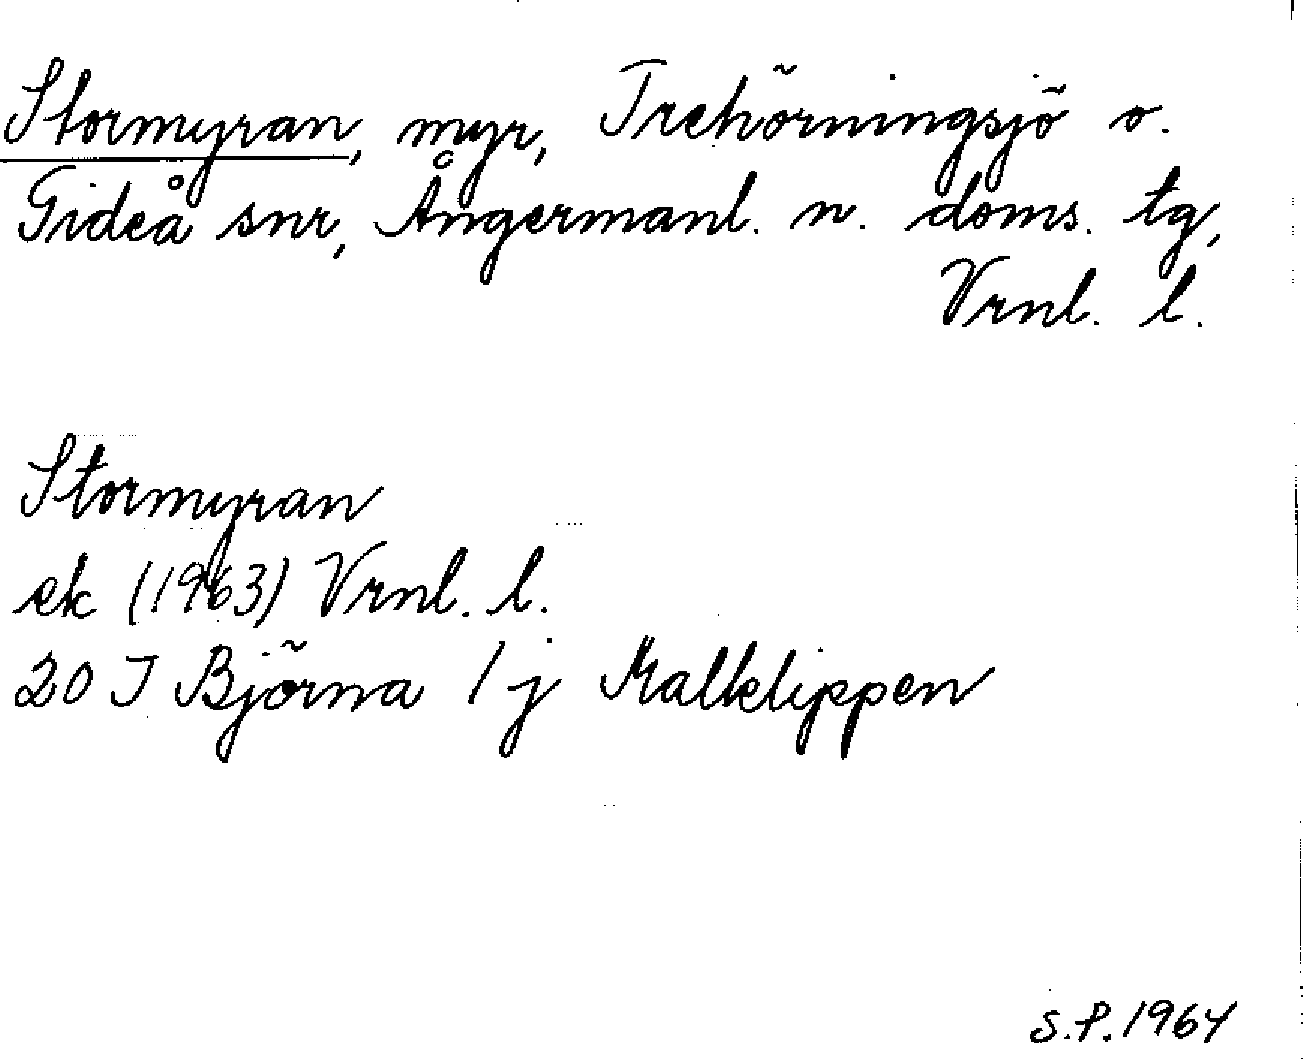 Stormyran, myr, Trehörningsjö o.
Gideå snr, Ångermanl. n. doms. tg,
Vrnl. l.
Stormyran
ek (1963) Vrnl. l.
20 I Björna 1 j Malklippen
S.P. 1964